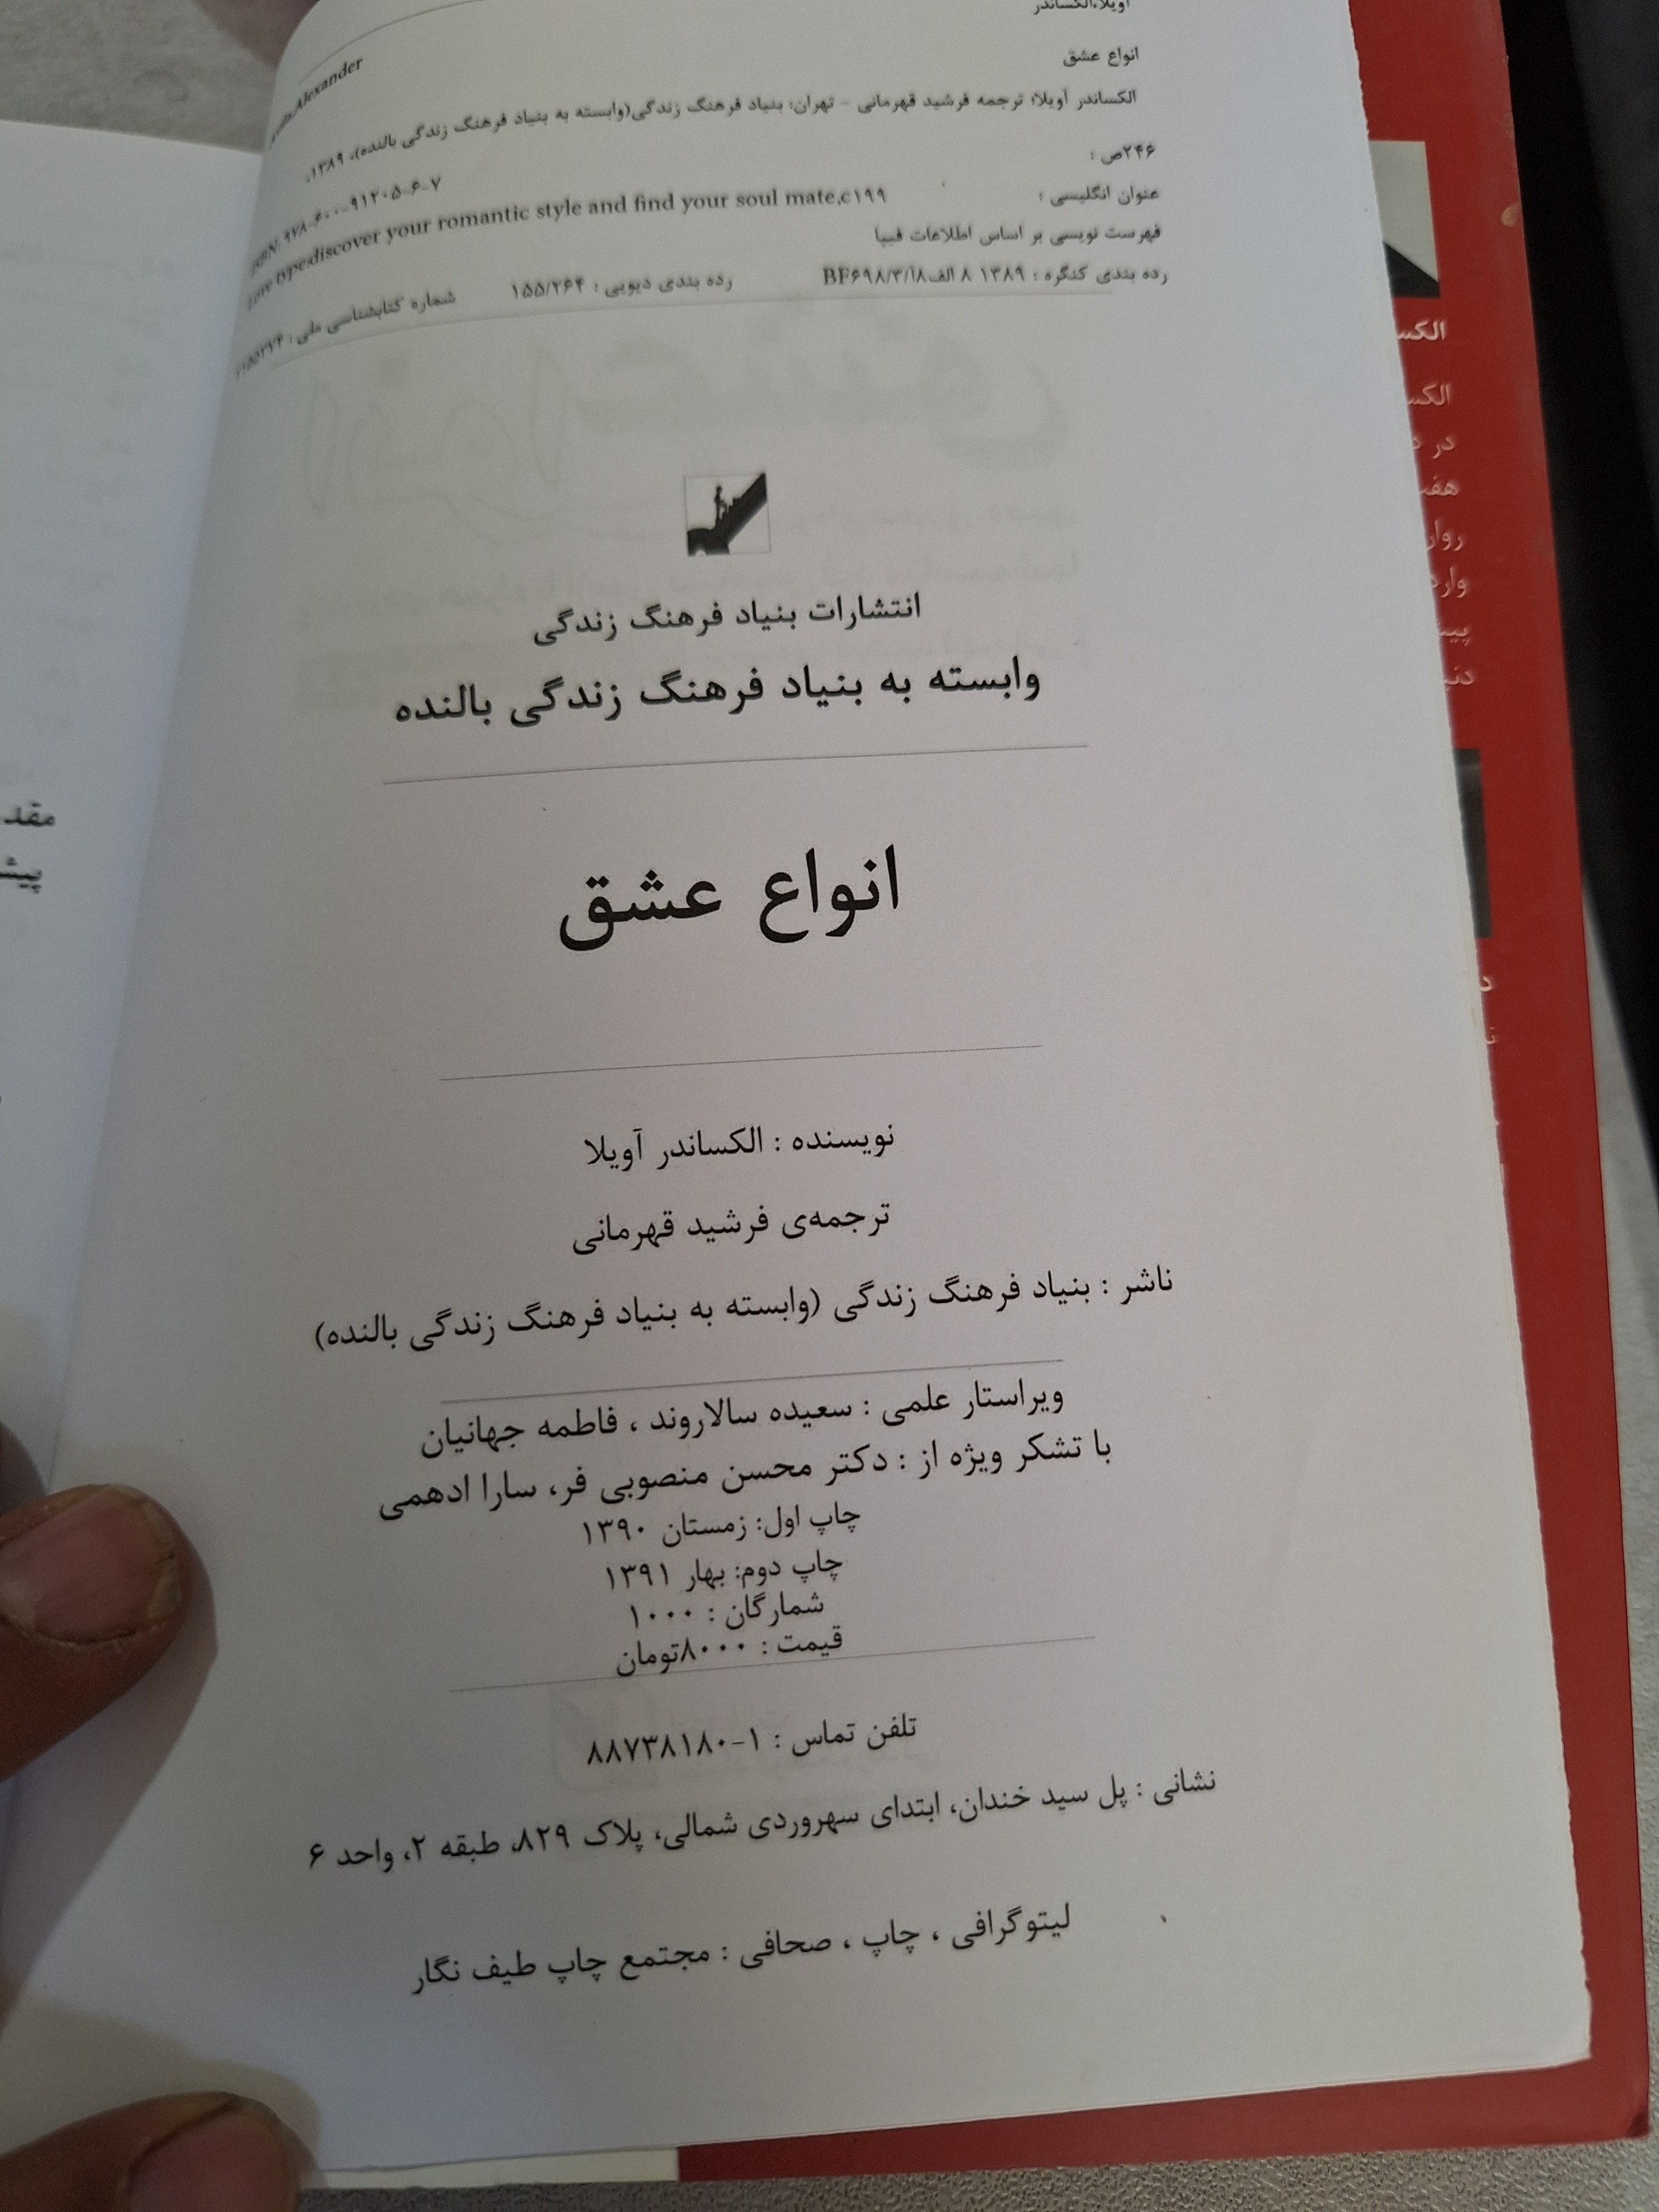 آویلا،الکساندر
Alexander
انواع عشق
الکساندر آویلا؛ ترجمه فرشید قهرمانی - تهران: بنیاد فرهنگ زندگی(وابسته به بنیاد فرهنگ زندگی بالنده)، ۱۳۸۹.
۲۴۶ص :
ISBN: ۹۷۸-۶۰۰-۹۱۲۰۵-۶-۷
عنوان انگلیسی : Love type:discover your romantic style and find your soul mate,c۱۹۹
فهرست نویسی بر اساس اطلاعات فیپا
رده بندی کنگره : ۱۳۸۹ ۸ الف۸آ/۳/BF۶۹۸ رده بندی دیویی : ۱۵۵/۲۶۴ شماره کتابشناسی ملی :
انتشارات بنیاد فرهنگ زندگی
وابسته به بنیاد فرهنگ زندگی بالنده
انواع عشق
نویسنده : الکساندر آویلا
ترجمه‌ی فرشید قهرمانی
ناشر : بنیاد فرهنگ زندگی (وابسته به بنیاد فرهنگ زندگی بالنده)
ویراستار علمی : سعیده سالاروند ، فاطمه جهانیان
با تشکر ویژه از : دکتر محسن منصوبی فر، سارا ادهمی
چاپ اول: زمستان ۱۳۹۰
چاپ دوم: بهار ۱۳۹۱
شمارگان : ۱۰۰۰
قیمت : ۸۰۰۰تومان
تلفن تماس : ۱-۸۸۷۳۸۱۸۰
نشانی : پل سید خندان، ابتدای سهروردی شمالی، پلاک ۸۲۹، طبقه ۲، واحد ۶
لیتوگرافی ، چاپ ، صحافی : مجتمع چاپ طیف نگار